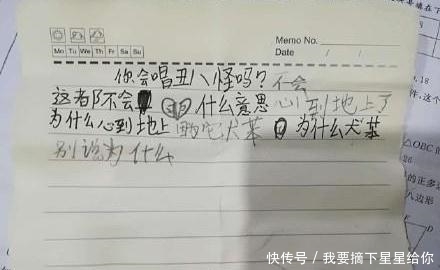 Memo No.
Mo Tu We Th Fr Sa Su
Date / /
你会唱丑八怪吗？不会
这都不会 什么意思 心到地上了
为什么心到地上 因它犬某 为什么犬某
别说为什么
.18
△OBC
26
的正多
八边形
快传号／我要摘下星星给你